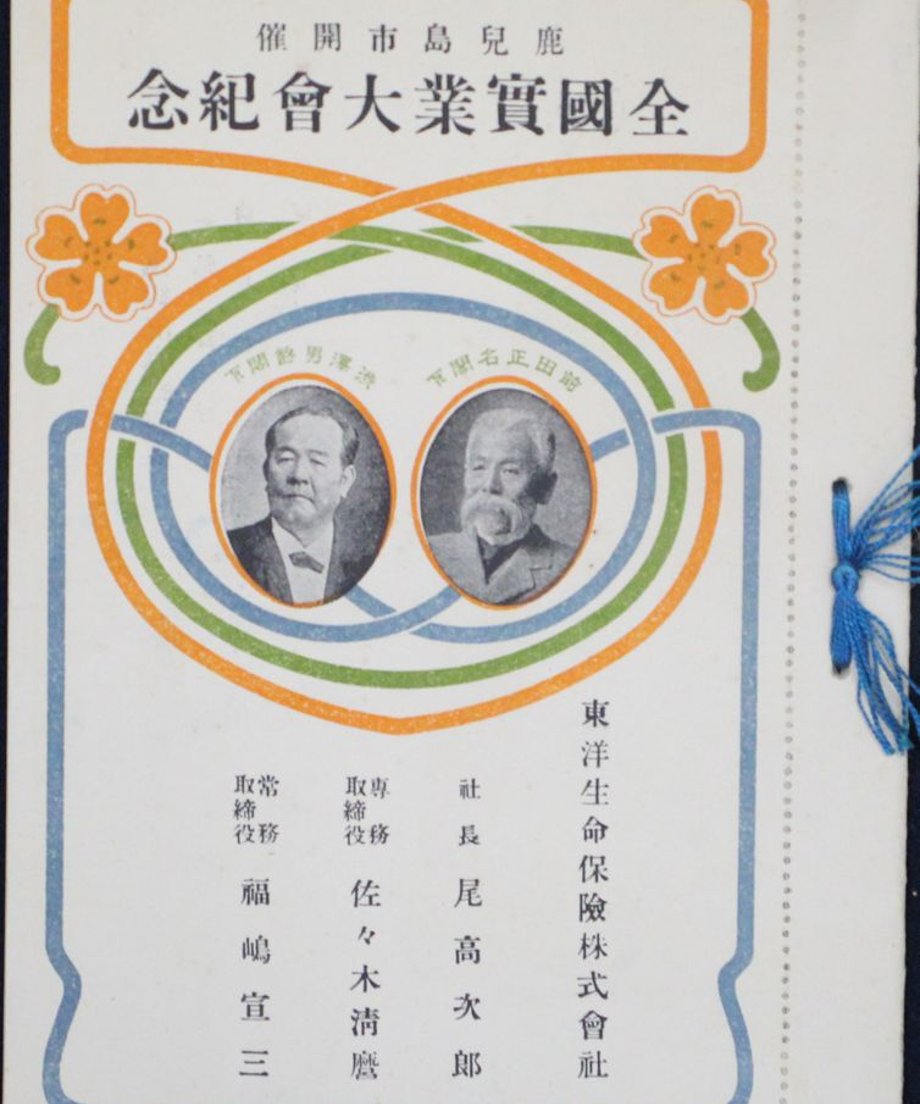 鹿兒島市開催
全國實業大會紀念
前田正名閣下
澁澤男爵閣下
東洋生命保險株式會社
社長 尾高次郎
專務取締役 佐々木清麿
常務取締役 福嶋宣三